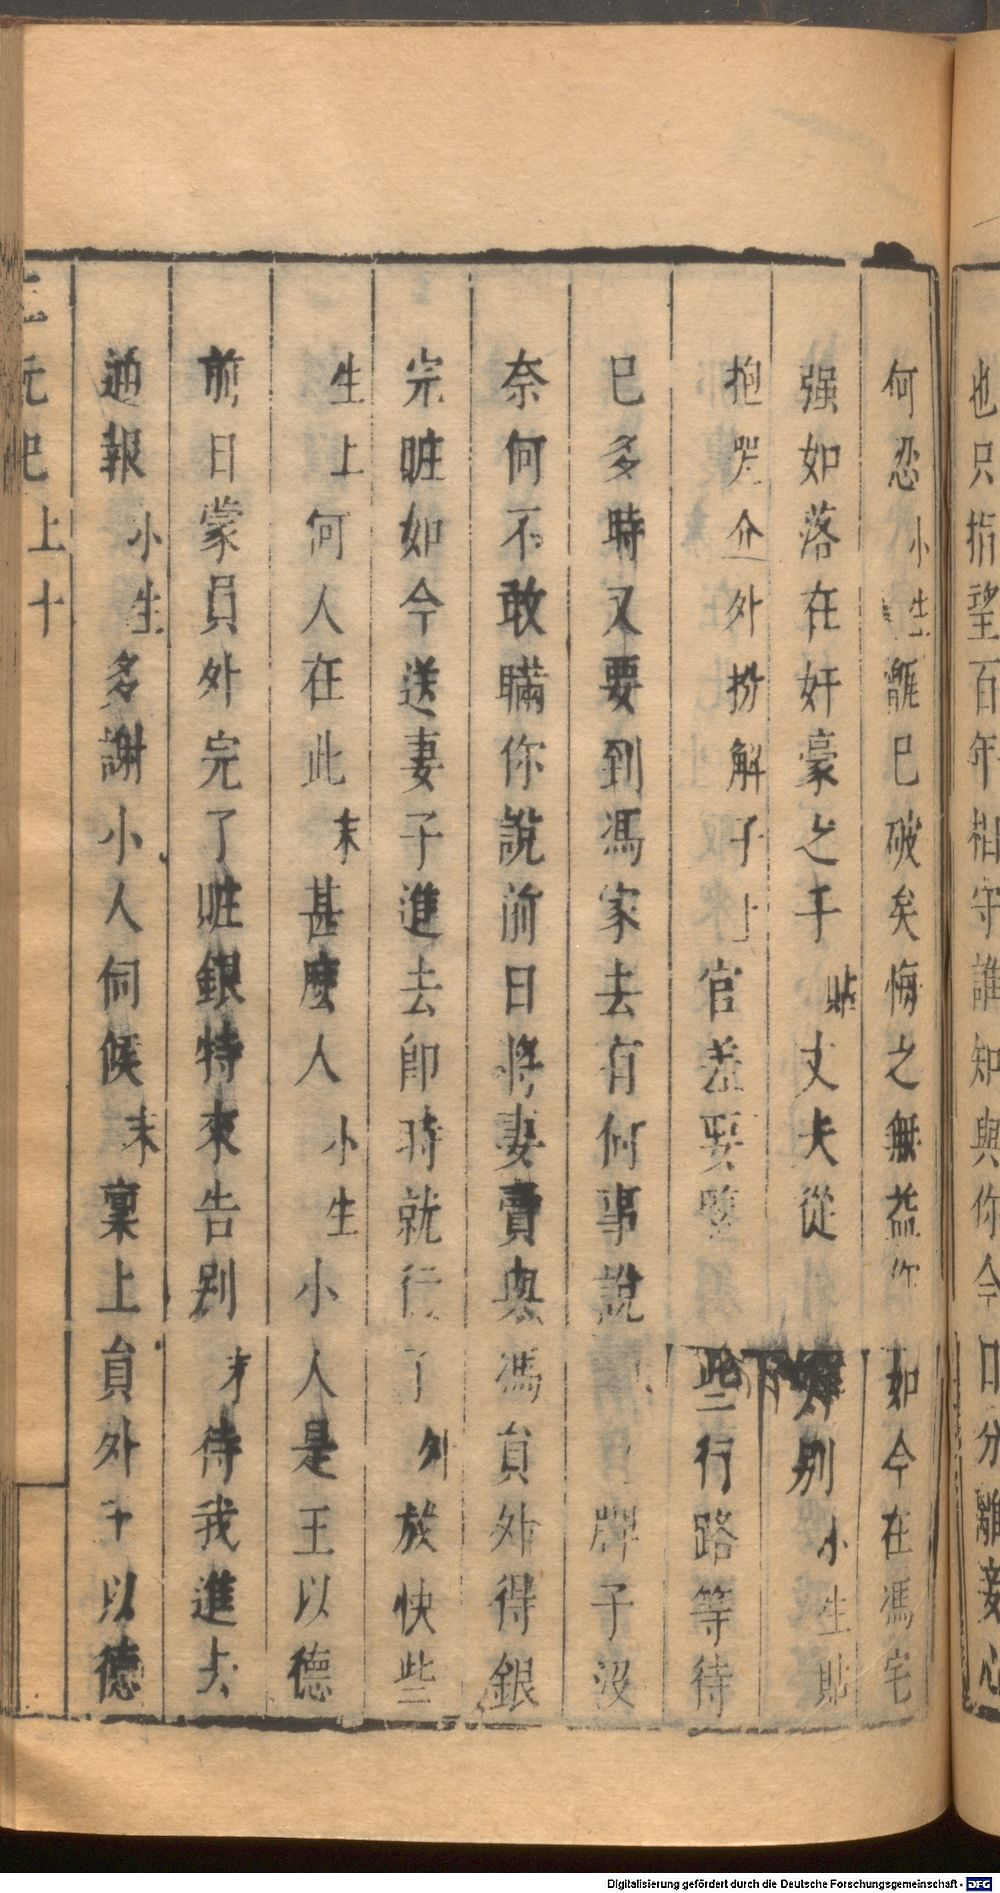 也只指望百年相守誰知與你今日分離妾心
何忍小生甑已破矣悔之無益你如今在馮宅
强如落在奸豪之手貼丈夫從別小生貼
抱哭介外扮解子上官差要緊些行路等待
已多時又要到馮家去有何事說牌子沒
奈何不敢瞞你說前日將妻賣與馮員外得銀
完賍如今送妻子進去卽時就行了外放快些
生上何人在此末甚麽人小生小人是王以德
前日蒙員外完了賍銀特來告别末待我進去
通報小生多謝小人伺候末稟上員外王以德
三元記上十
Digitalisierung gefördert durch die Deutsche Forschungsgemeinschaft - DFG